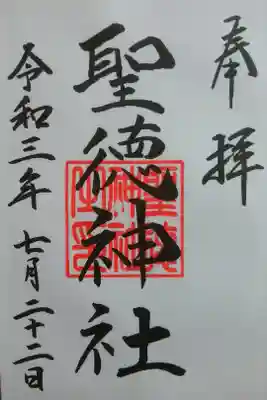 奉拝
聖徳神社
令和三年 七月二十二日